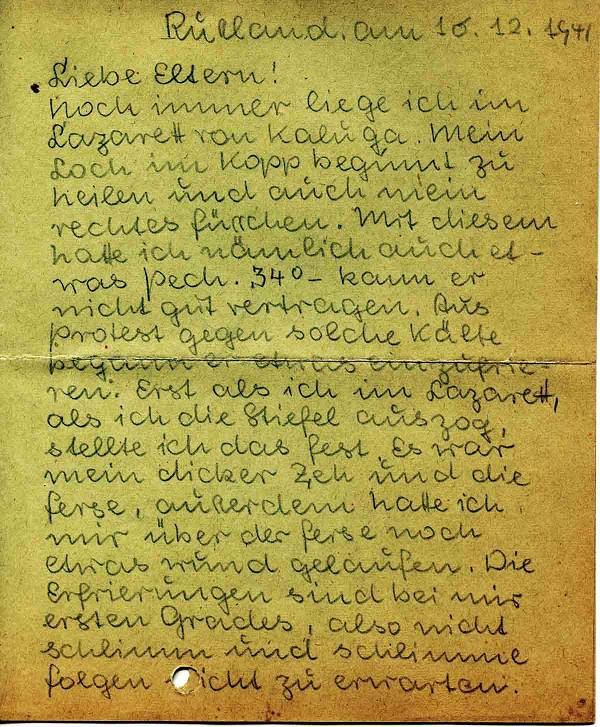 Rußland, am 10. 12. 1941
Liebe Eltern!
Noch immer liege ich im
Lazarett von Kaluga. Mein
Loch im Kopp beginnt zu
heilen und auch mein
rechtes Füßchen. Mit diesem
hatte ich nämlich auch et-
was Pech. 34° – kann er
nicht gut vertragen. Aus
Protest gegen solche Kälte
begann er etwas einzufrie-
ren. Erst als ich im Lazarett,
als ich die Stiefel auszog,
stellte ich das fest. Es war
mein dicker Zeh und die
Ferse, außerdem hatte ich
mir über der Ferse noch
etwas wund gelaufen. Die
Erfrierungen sind bei mir
ersten Grades, also nicht
schlimm und schlimme
Folgen nicht zu erwarten.